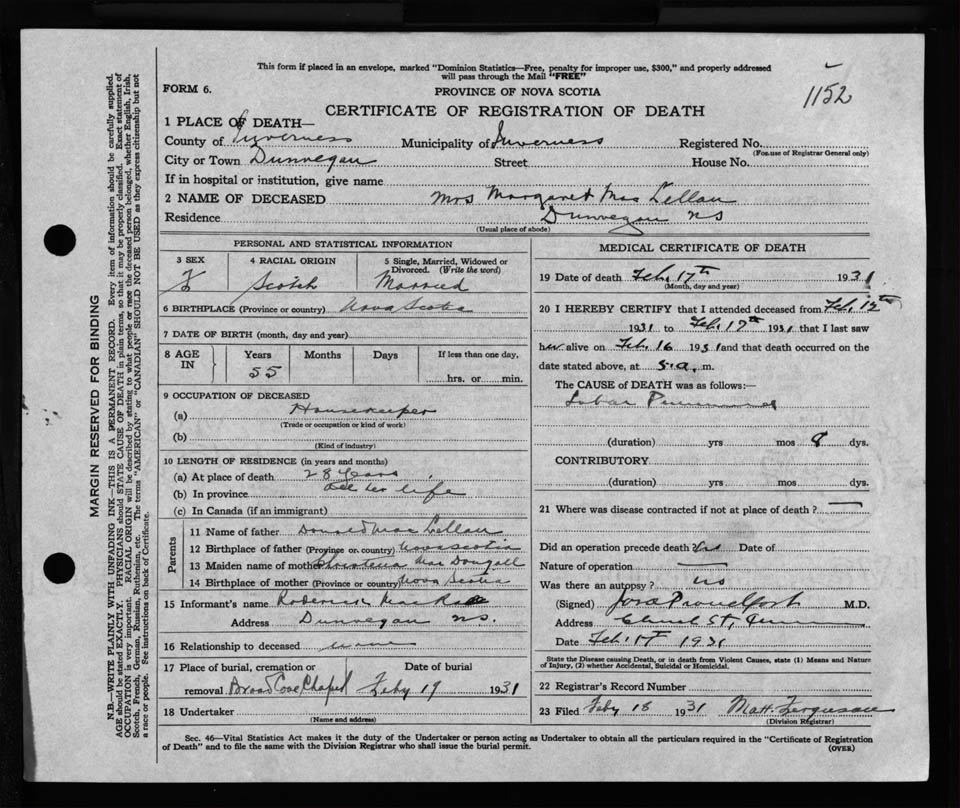 This form if placed in an envelope, marked "Dominion Statistics—Free, penalty for improper use, $300," and properly addressed
will pass through the Mail "FREE"
1152
FORM 6.
PROVINCE OF NOVA SCOTIA
CERTIFICATE OF REGISTRATION OF DEATH
1 PLACE OF DEATH—
County of Inverness Municipality of Inverness Registered No.
(For use of Registrar General only)
City or Town Dunvegan Street House No.
If in hospital or institution, give name
2 NAME OF DECEASED Mrs Margaret Mac Lellan
Residence Dunvegan NS
(Usual place of abode)
PERSONAL AND STATISTICAL INFORMATION
3 SEX 4 RACIAL ORIGIN 5 Single, Married, Widowed or
Divorced. (Write the word)
F Scotch Married
6 BIRTHPLACE (Province or country) Nova Scotia
7 DATE OF BIRTH (month, day and year)
8 AGE IN Years Months Days If less than one day,
55 hrs. or min.
9 OCCUPATION OF DECEASED
(a) Housekeeper
(Trade or occupation or kind of work)
(b)
(Kind of industry)
10 LENGTH OF RESIDENCE (in years and months)
(a) At place of death 28 Years
(b) In province All her life
(c) In Canada (if an immigrant)
Parents
11 Name of father Donald Mac Lellan
12 Birthplace of father (Province or country) Nova Scotia
13 Maiden name of mother Mac Dougall
14 Birthplace of mother (Province or country) Nova Scotia
15 Informant's name Roderick
Address Dunvegan NS.
16 Relationship to deceased none
17 Place of burial, cremation or Date of burial
removal Broad Cove Chapel Feby 19 1931
18 Undertaker
(Name and address)
MEDICAL CERTIFICATE OF DEATH
19 Date of death Feb. 17th 1931
(Month, day and year)
20 I HEREBY CERTIFY that I attended deceased from Feb. 12th
1931 to Feb. 17th 1931 that I last saw
her alive on Feb. 16 1931 and that death occurred on the
date stated above, at 5 a. m.
The CAUSE of DEATH was as follows:—
Lobar Pneumonia
(duration) yrs mos 8 dys.
CONTRIBUTORY
(duration) yrs. mos. dys.
21 Where was disease contracted if not at place of death?
Did an operation precede death? Date of
Nature of operation
Was there an autopsy? no
(Signed) Proudfoot M.D.
Address
Date Feb. 17 1931
State the Disease causing Death, or in death from Violent Causes, state (1) Means and Nature
of Injury, (2) whether Accidental, Suicidal or Homicidal.
22 Registrar's Record Number
23 Filed Feby 18 1931 Matt. Ferguson
(Division Registrar)
Sec. 46—Vital Statistics Act makes it the duty of the Undertaker or person acting as Undertaker to obtain all the particulars required in the "Certificate of Registration
of Death" and to file the same with the Division Registrar who shall issue the burial permit.
(OVER)
MARGIN RESERVED FOR BINDING
N.B.—WRITE PLAINLY WITH UNFADING INK—THIS IS A PERMANENT RECORD. Every item of information should be carefully supplied.
AGE should be stated EXACTLY. PHYSICIANS should STATE CAUSE OF DEATH in plain terms, so that it may be properly classified. Exact statement of
OCCUPATION is very important. RACIAL ORIGIN will be described by stating to what people or race the deceased person belonged, whether English, Irish,
Scotch, French, German, Russian, Ruthenian, etc. The terms "AMERICAN" or "CANADIAN" SHOULD NOT BE USED as they express citizenship but not
a race or people. See instructions on back of Certificate.